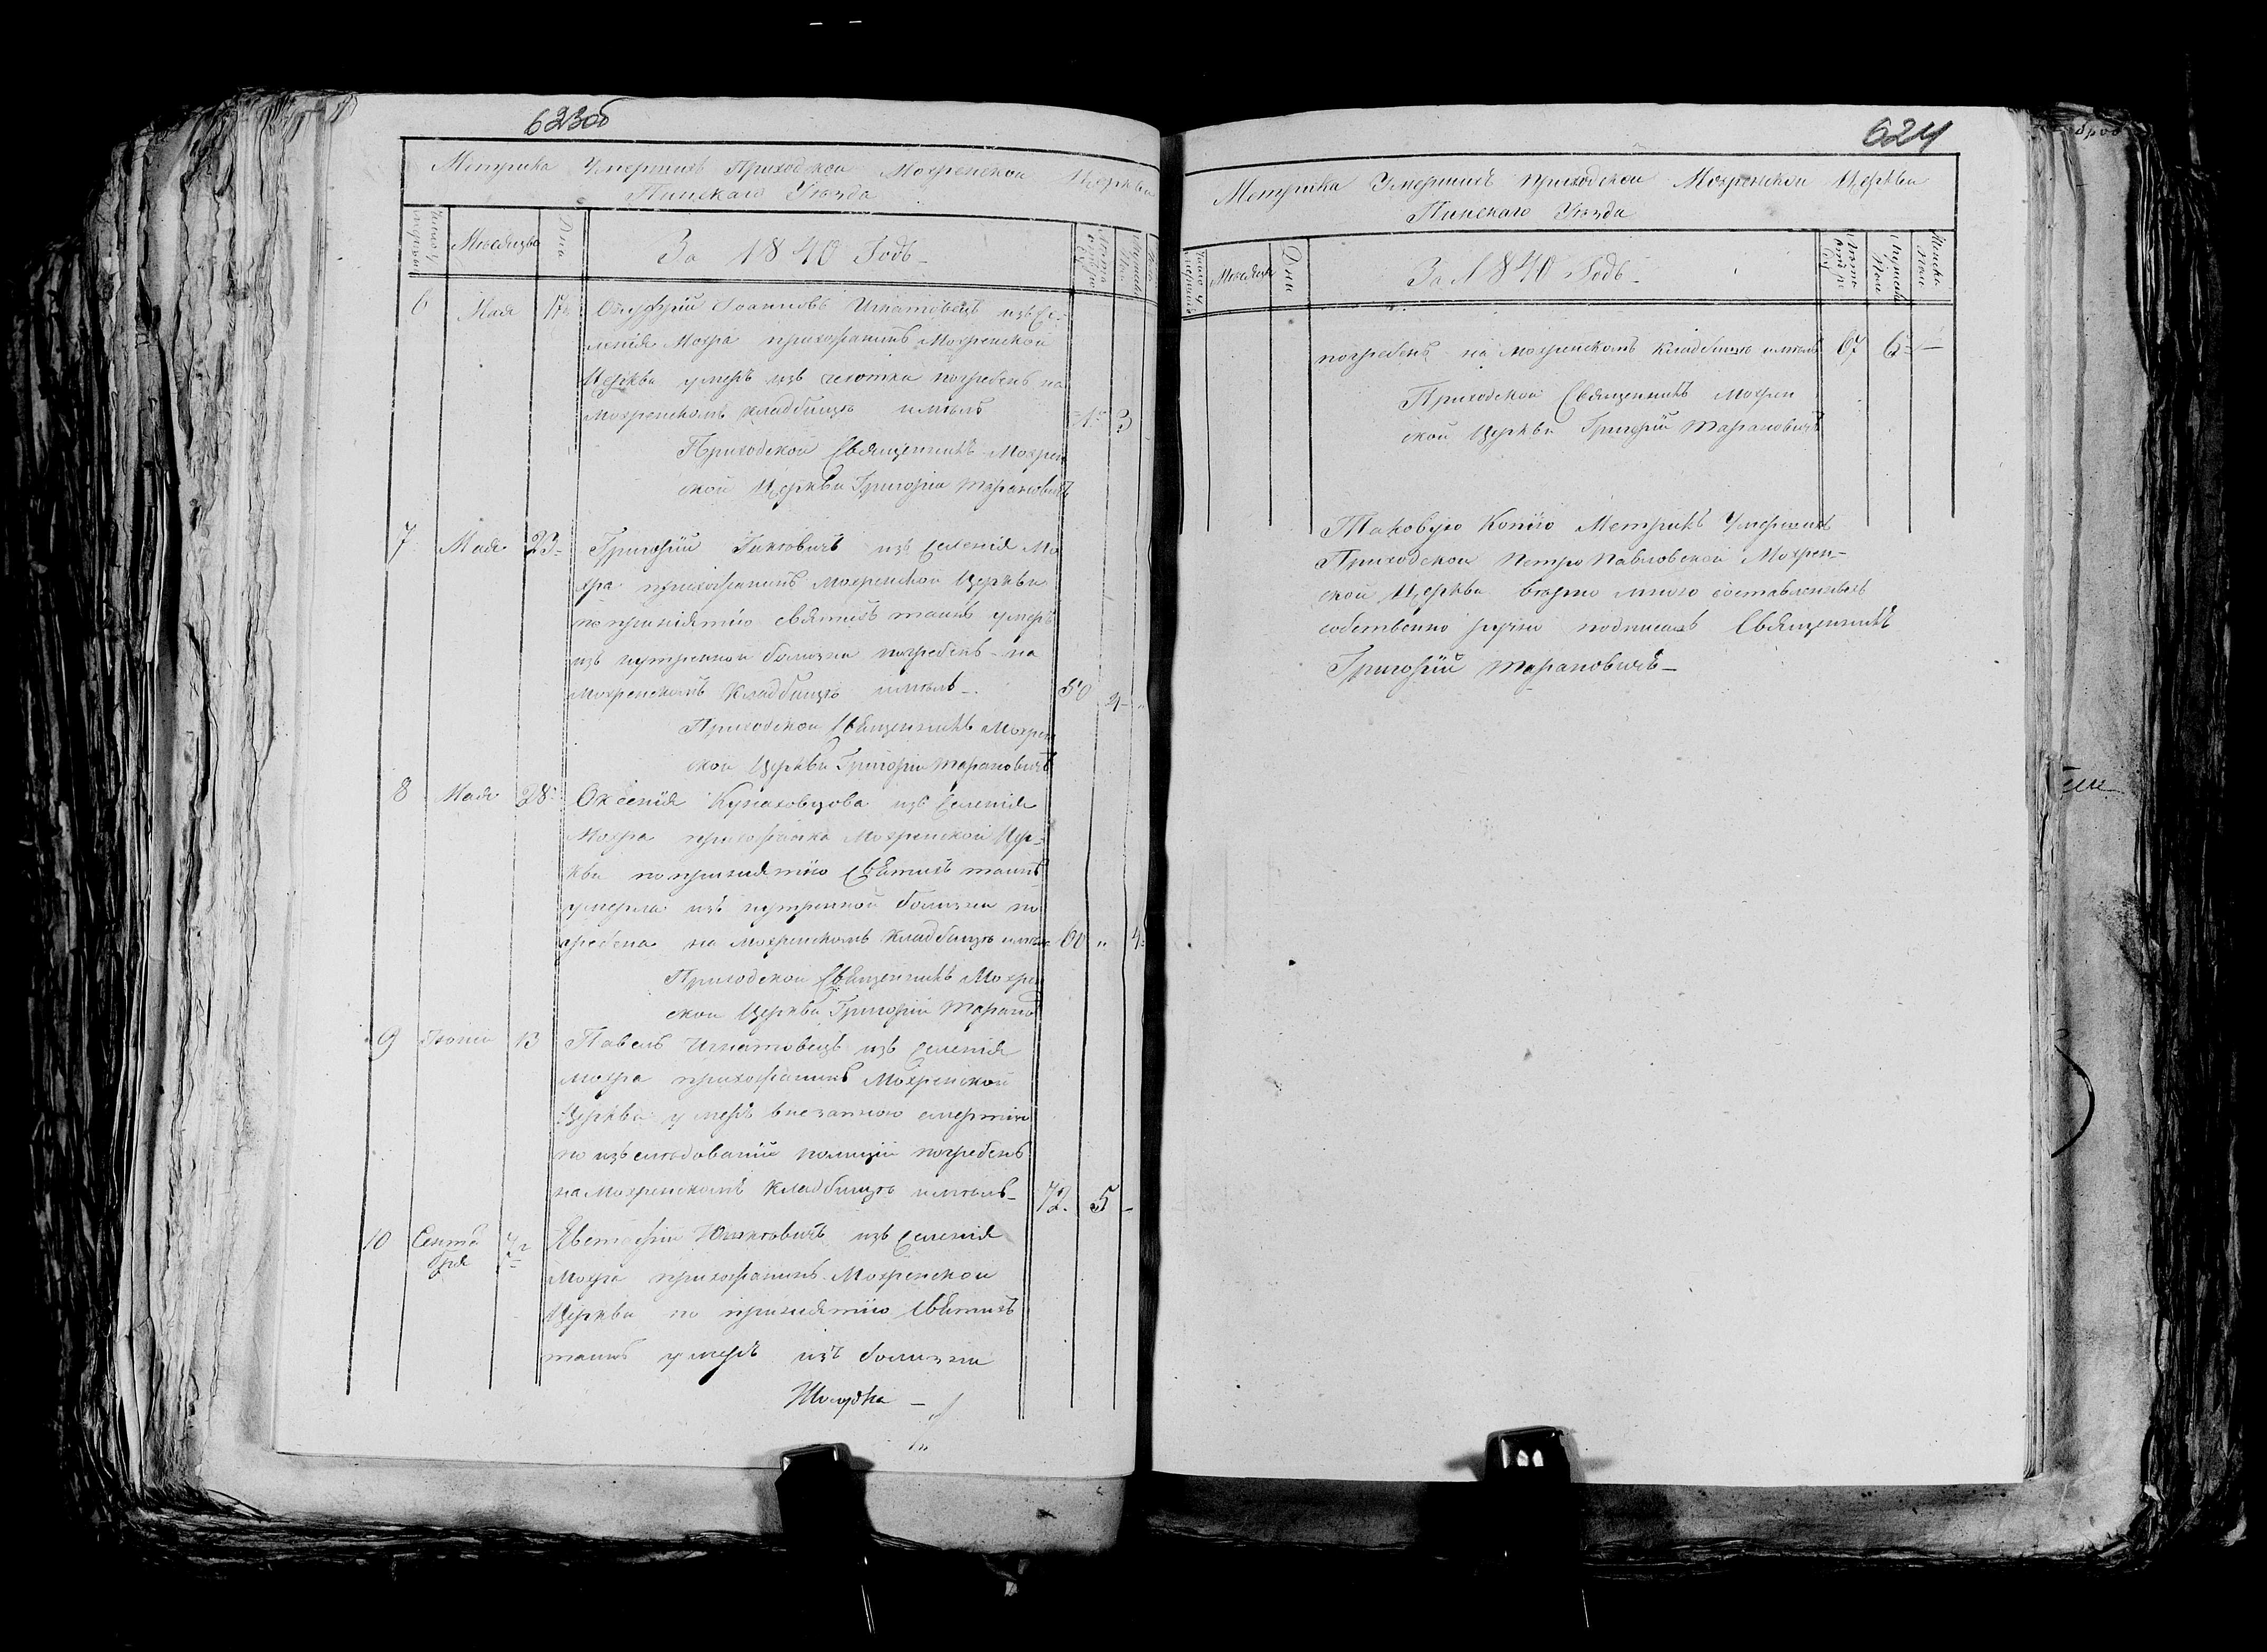 623об
Метрика Умершихъ Приходской Мохренской Церкви
Пинскаго Уезда
Месяцъ Дня За 1840 Годъ
6 Мая 17 Онуфрій Іоанновъ Игнатовецъ изъ Се-
ленія Мохра прихожанинъ Мохренской
Церкви умеръ изъ погребенъ на
Мохренскомъ кладбищѣ имелъ 3
Приходской Священникъ Мохрен
ской Церкви Григорій Тарановичъ
7 Мая 23 Григорій изъ Селенія Мо
хра прихожанинъ Мохренской Церкви
по принятію святихъ таинъ умеръ
изъ нутренной болизни погребенъ на
Мохренскомъ Кладбищѣ имелъ 50 4
Приходской Священникъ Мохрен
ской Церкви Григорій Тарановичъ
8 Мая 28 Оксенія изъ Селенія
Мохра прихожанка Мохренской Цер-
кви по принятію Святихъ таинъ
умерла изъ нутренной болизни по
гребена на Мохренскомъ Кладбищѣ имела 60 „ 4
Приходской Священникъ Мохрен
ской Церкви Григорій Таранов
9 Іюнія 13 Павелъ Игнатовецъ изъ Селенія
Мохра прихожанинъ Мохренской
Церкви умеръ внезапною смертію
по изследованіи полиціи погребенъ
на Мохренскомъ Кладбищѣ имелъ 72 5
10 Сентя
бря изъ Селенія
Мохра прихожанинъ Мохренской
Церкви по принятію Святихъ
таинъ умеръ изъ болизни
624
Метрика Умершихъ Приходской Мохренской Церкви
Пинскаго Уезда
Месяцъ Дни За 1840 Годъ Мужеска Поле Женска Поле
погребенъ на Мохренскомъ Кладбищѣ имелъ 67 6
Приходской Священникъ Мохрен
ской Церкви Григорій Тарановичъ
Таковую Копію Метрикъ Умершихъ
Приходской Петро Павловской Мохрен-
ской Церкви верно мною составленныхъ
собственно ручно подписалъ Священникъ
Григорій Тарановичъ